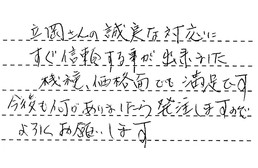 立岡さんの誠実な対応に
すぐ信頼する事が出来ました
機種、価格面でも満足です
今後も何かありましたら発注しますので
よろしくお願いします